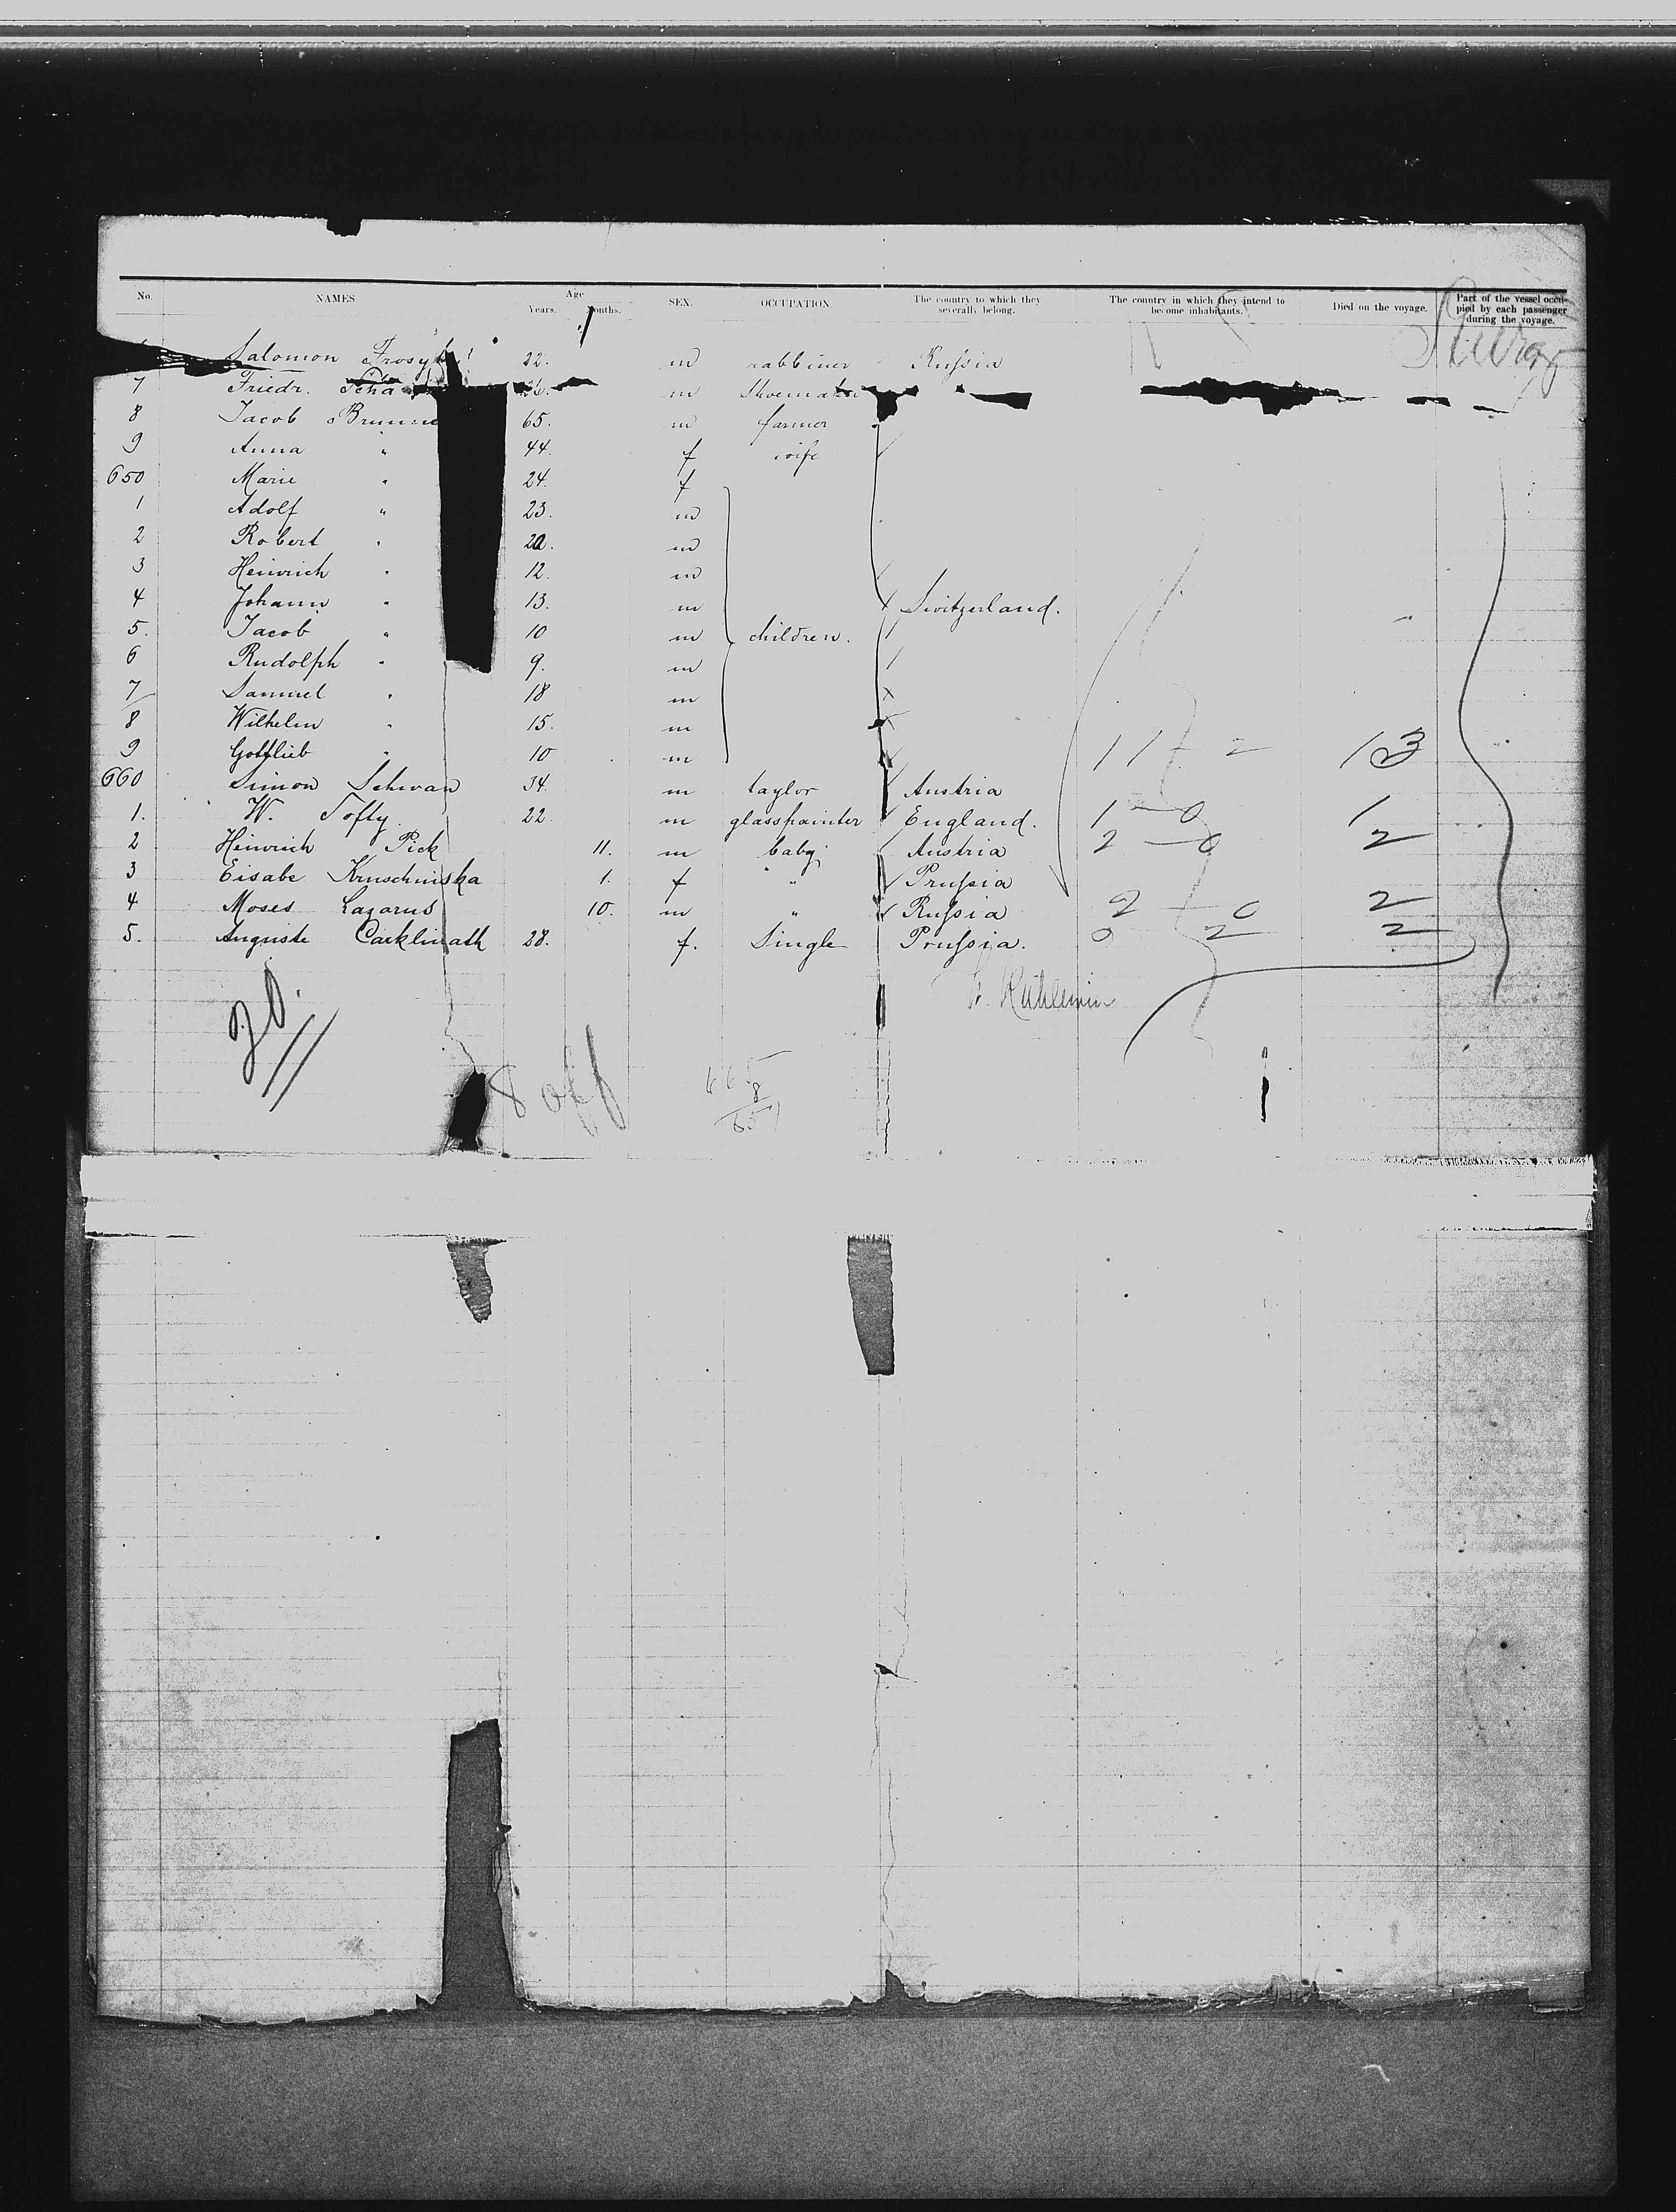 No. NAMES Age Years. Months. SEX. OCCUPATION. The country to which they severally belong. The country in which they intend to become inhabitants. Died on the voyage. Part of the vessel occupied by each passenger during the voyage.
Salomon 22. m rabbiner Russia
7 Friedr. 26. m Shoemaker
8 Jacob 65. m farmer
9 Anna " 44. f wife
650 Marie " 24. f
1 Adolf " 23. m
2 Robert " 20. m
3 Heinrich " 12. m
4 Johann " 13. m Switzerland.
5. Jacob " 10 m children.
6 Rudolph " 9. m
7 Samuel " 18 m
8 Wilhelm " 15. m
9 Gottlieb " 10 m 11 2 13
660 Simon Schwan 34. m taylor Austria
1. W. Tofty 22. m glasspainter England. 1 — 0 1
2 Heinrich Pick 11. m baby Austria 2 — 0 2
3 Eisabe Kruschinska 1. f " Prussia
4 Moses Lazarus 10. m " Russia 2 — 0 2
5. Auguste Carklinath 28. f. Single Prussia. 0 2 2
20.
8 off
665
8
657